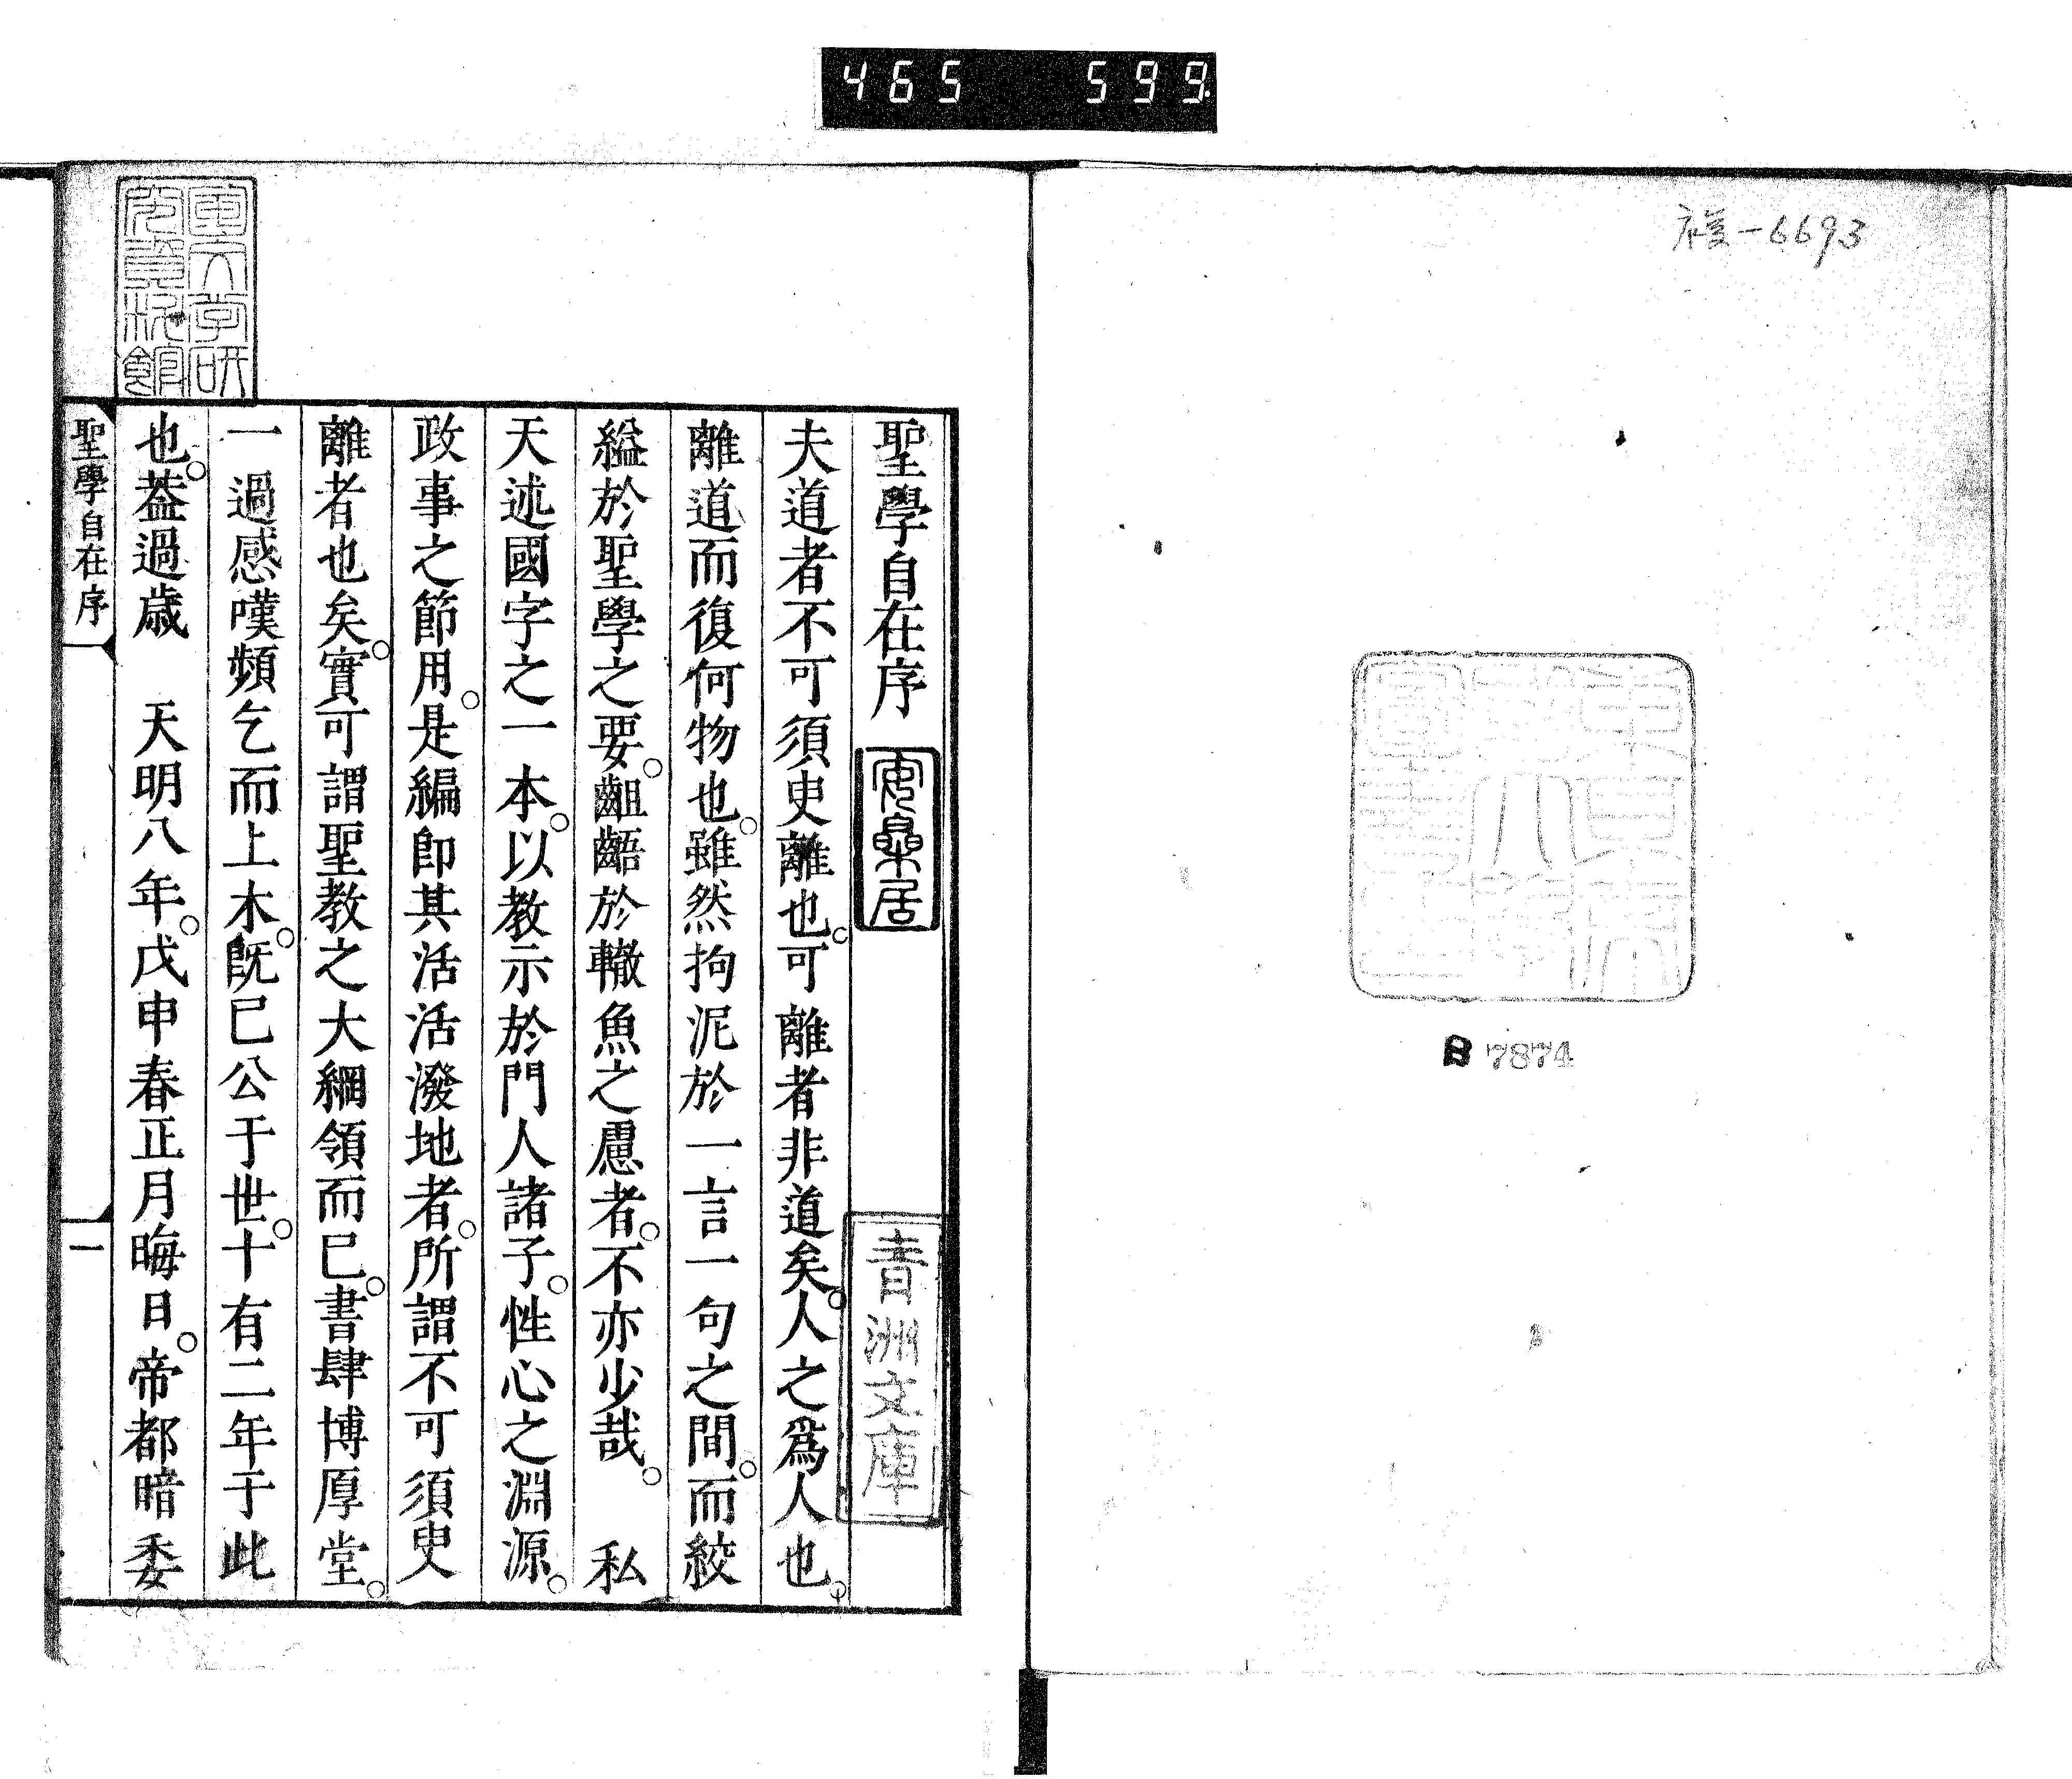 465 599
-6693
B 7874
聖學自在序
青洲文庫
夫道者不可須臾離也。可離者非道矣。人之爲人也。
離道而復何物也。雖然拘泥於一言一句之間。而絞
縊於聖學之要。齟齬於轍魚之慮者。不亦少哉。 私
天述國字之一本。以教示於門人諸子。性心之淵源。
政事之節用。是編即其活活潑地者。所謂不可須臾
離者也矣。實可謂聖教之大綱領而已。書肆博厚堂。
一過感嘆頻乞而上木。既已公于世。十有二年于此
也。葢過歳 天明八年。戊申春正月晦日。帝都暗委
聖學自在序
一